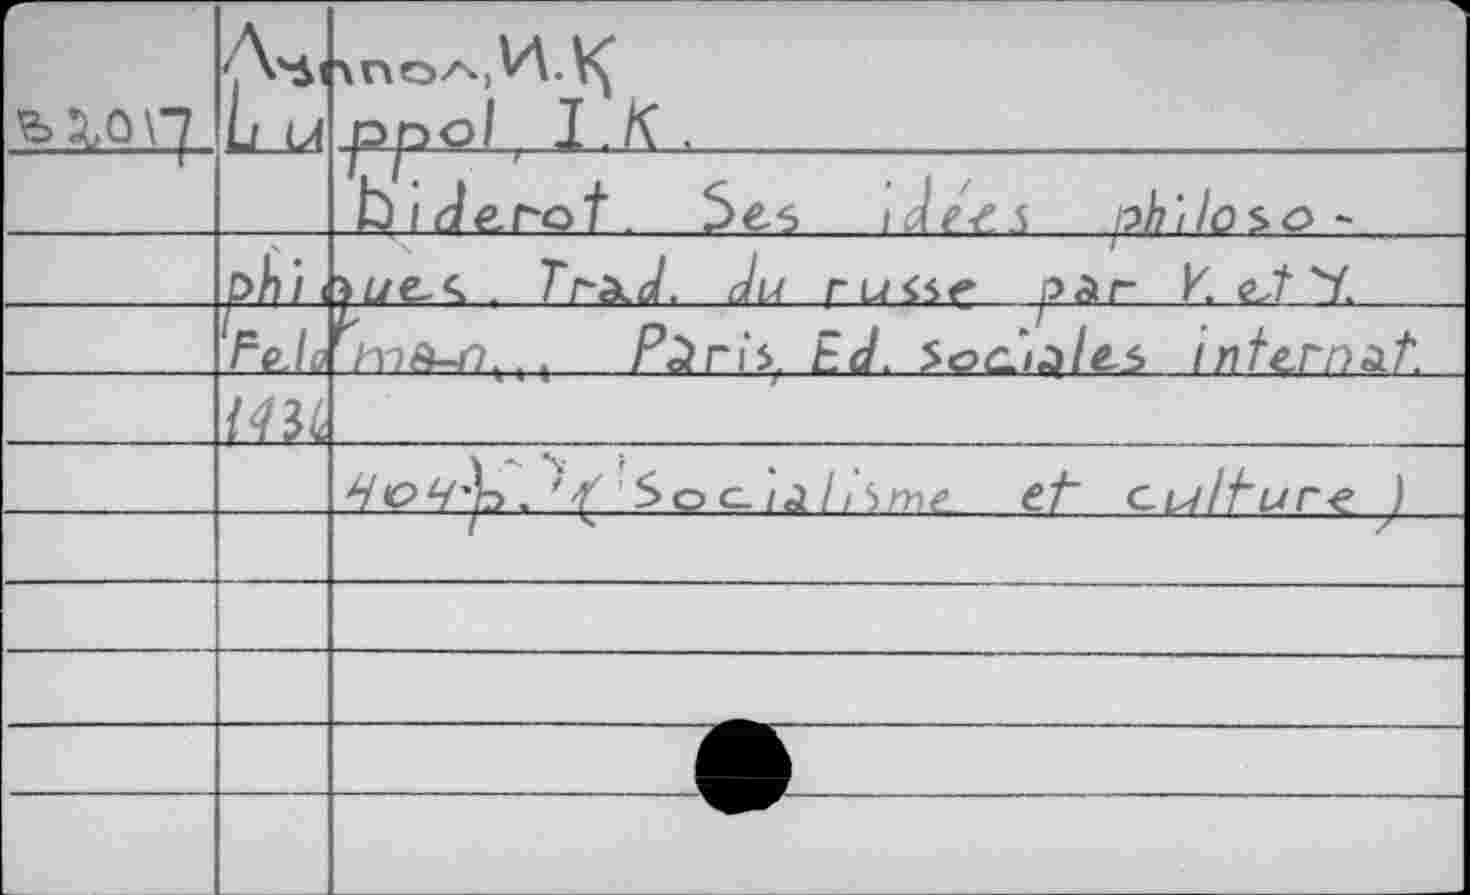 Луппол, И.К
Б2017 Luppol, I.K.
Diderot. Ses idées philoso-
phiques. Trad. du russe par V. et Y.
Feldman... Paris, Ed. sociales internat.
1936
404 p. (Socialisme et culture)